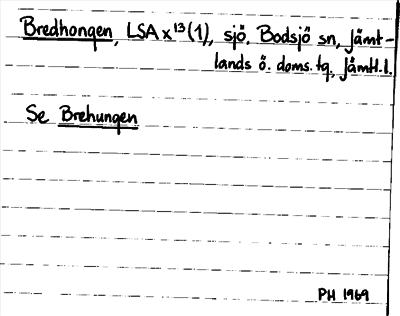 Bredhongen, LSA x¹³(1), sjö, Bodsjö sn, Jämt-
lands ö. doms. tq, Jämtl. l.
Se Brehungen
PH 1969